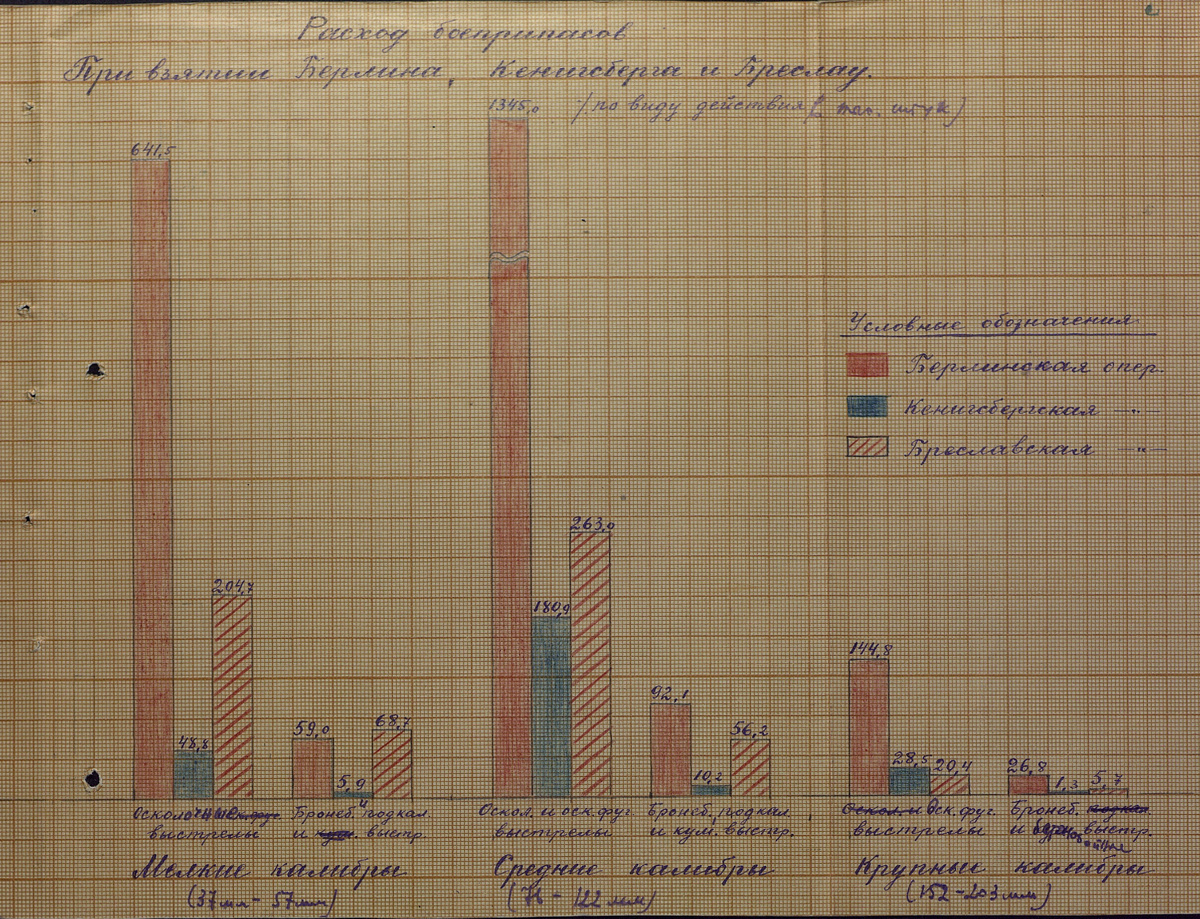 Расход боеприпасов
При взятии Берлина, Кенигсберга и Бреслау.
/по виду действия (в тыс. штук)
641,5
48,8
204,7
59,0
5,9
68,7
1345,0
180,9
263,0
92,1
10,2
56,2
144,8
28,5
20,4
26,8
1,3
5,7
Условные обозначения
Берлинская опер.
Кенигсбергская —"—
Бреславская —"—
выстрелы
Бронеб. и подкал.
и выстр.
Мелкие калибры
(37мм - 57мм)
Оскол. и оск.фуг.
выстрелы
Бронеб. подкал.
и кум. выстр.
Средние калибры
(76 - 122 мм)
Оскол. и Оск.фуг.
выстрелы
Бронеб. подкал.
и выстр.
Крупные калибры
(152-203 мм)